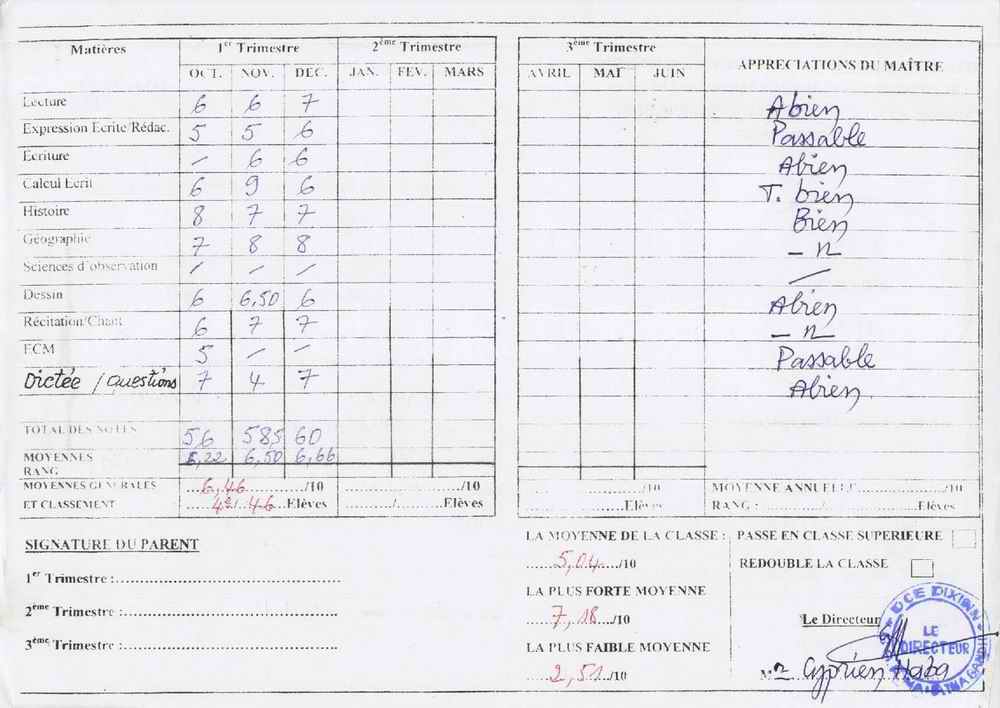 Matières 1er Trimestre 2ème Trimestre 3ème Trimestre APPRECIATIONS DU MAÎTRE
OCT. NOV. DEC. JAN. FEV. MARS AVRIL MAI JUIN
Lecture 6 6 7 Abien
Expression Ecrite/Rédac. 5 5 6 Passable
Ecriture - 6 6 Abien
Calcul Ecrit 6 9 6 T. bien
Histoire 8 7 7 Bien
Géographie 7 8 8 - n
Sciences d'observation / - / /
Dessin 6 6,50 6 Abien
Récitation/Chant 6 7 7 - n
ECM 5 - - Passable
Dictée / questions 7 4 7 Abien
TOTAL DES NOTES 56 585 60
MOYENNES 6,22 6,50 6,66
RANG
MOYENNES GENERALES 6,46 /10 /10 /10 MOYENNE ANNUELLE /10
ET CLASSEMENT 4e/46 Elèves / Elèves Elèves RANG : Elèves
SIGNATURE DU PARENT
1er Trimestre :
2ème Trimestre :
3ème Trimestre :
LA MOYENNE DE LA CLASSE :
5,04 /10
LA PLUS FORTE MOYENNE
7,18 /10
LA PLUS FAIBLE MOYENNE
2,51 /10
PASSE EN CLASSE SUPERIEURE
REDOUBLE LA CLASSE
Le Directeur
Mr Cyprien Haba
DCE DIXINN
LE
DIRECTEUR